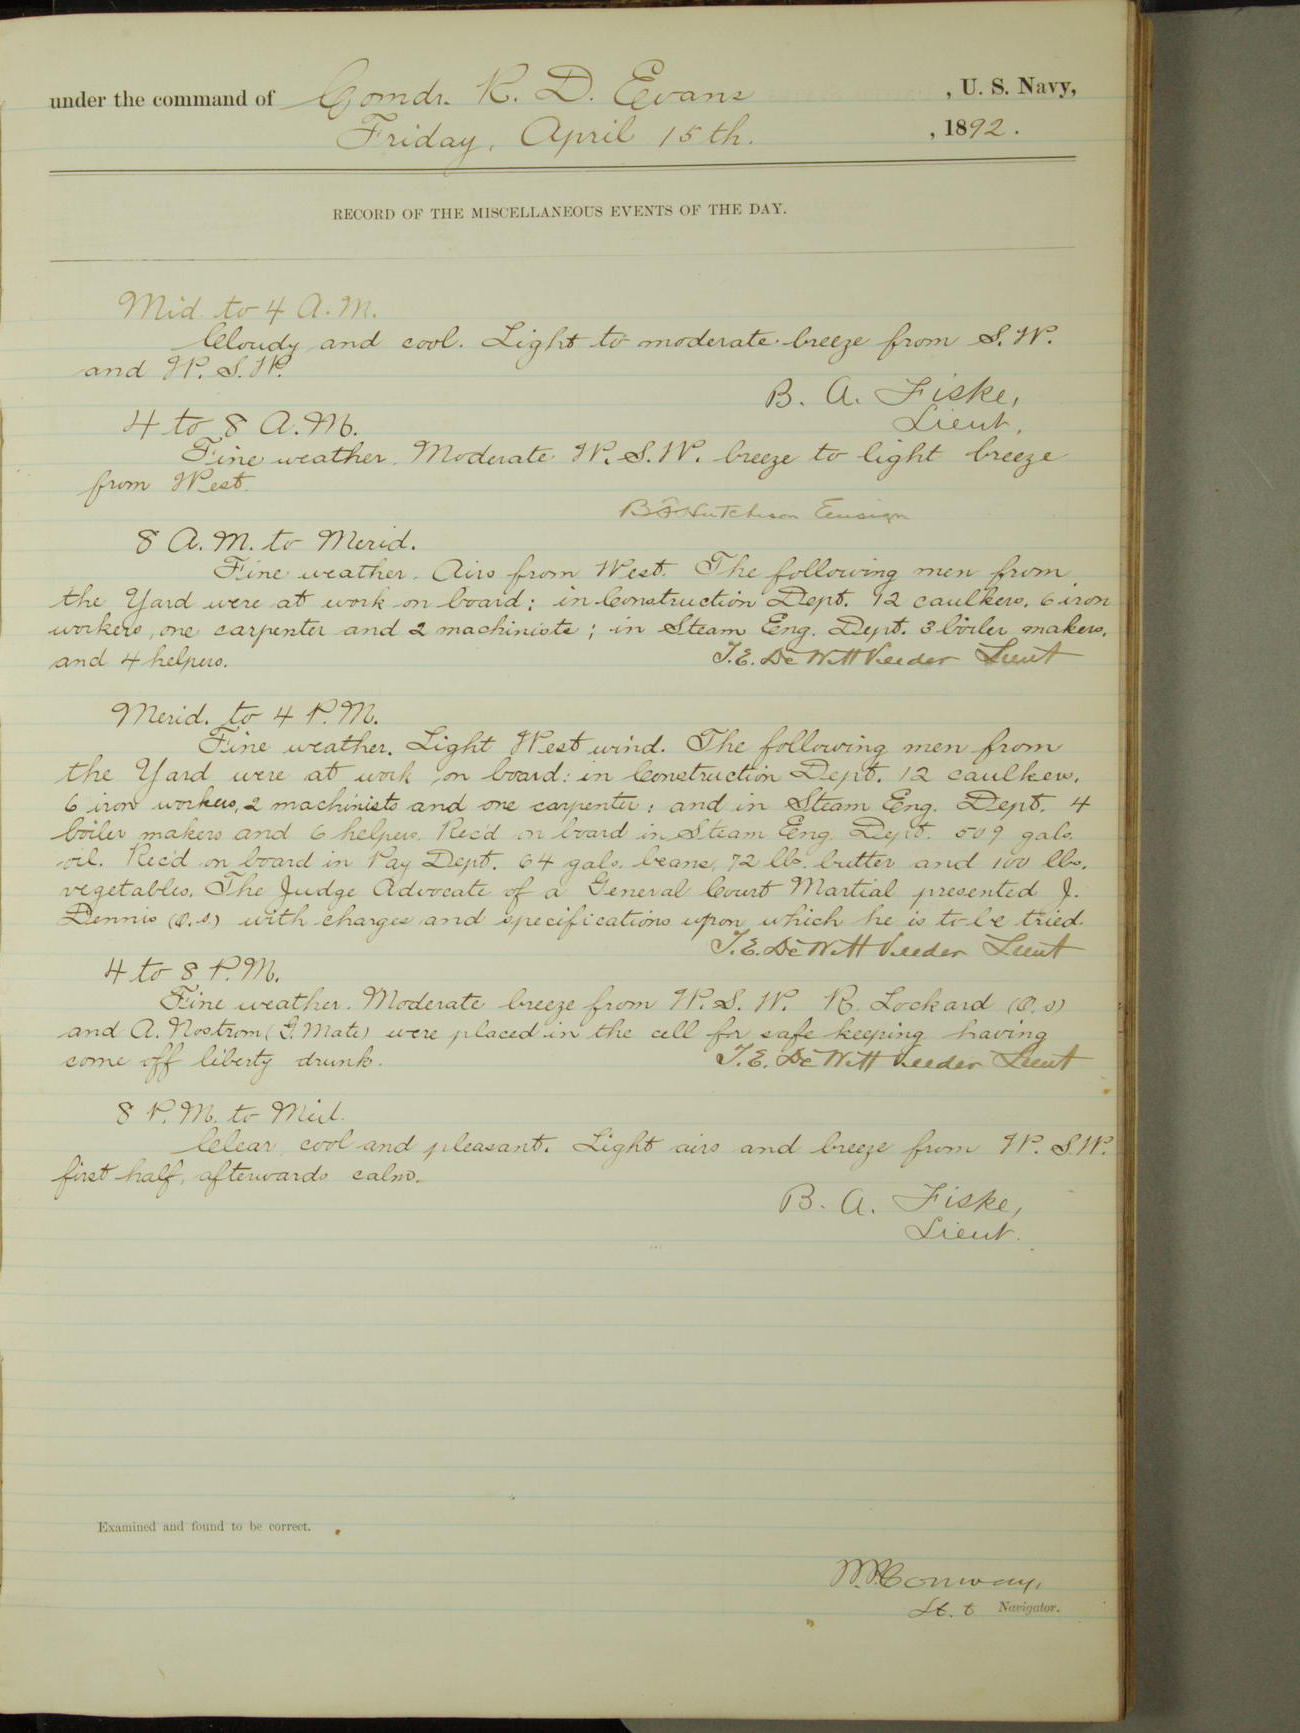 under the command of Comdr. R. D. Evans, U. S. Navy,
Friday, April 15th., 1892.
RECORD OF THE MISCELLANEOUS EVENTS OF THE DAY.
Mid. to 4 A.M.
Cloudy and cool. Light to moderate breeze from S.W.
and W.S.W.
B. A. Fiske,
Lieut.
4 to 8 A.M.
Fine weather. Moderate W.S.W. breeze to light breeze
from West.
Hutchison Ensign
8 A.M. to Merid.
Fine weather. Airs from West. The following men from
the Yard were at work on board; in Construction Dept. 12 caulkers, 6 iron
workers, one carpenter and 2 machinists; in Steam Eng. Dept. 3 boiler makers,
and 4 helpers.
T.E. DeWitt Veeder Lieut
Merid. to 4 P.M.
Fine weather. Light West wind. The following men from
the Yard were at work on board: in Construction Dept. 12 caulkers,
6 iron workers, 2 machinists and one carpenter; and in Steam Eng. Dept. 4
boiler makers and 6 helpers. Rec'd on board in Steam Eng. Dept. 509 gals.
oil. Rec'd on board in Pay Dept. 64 gals. beans, 72 lbs. butter and 100 lbs.
vegetables. The Judge Advocate of a General Court Martial presented J.
Dennis (O.S) with charges and specifications upon which he is to be tried.
T.E. DeWitt Veeder Lieut
4 to 8 P.M.
Fine weather. Moderate breeze from W.S.W. R. Lockard (O.S)
and A. Nostrom (G. Mate) were placed in the cell for safe keeping having
come off liberty drunk.
T.E. DeWitt Veeder Lieut
8 P.M. to Mid.
Clear, cool and pleasant. Light airs and breeze from W.S.W.
first half, afterwards calm.
B. A. Fiske,
Lieut.
Examined and found to be correct.
W.P. Conway,
Lt. & Navigator.